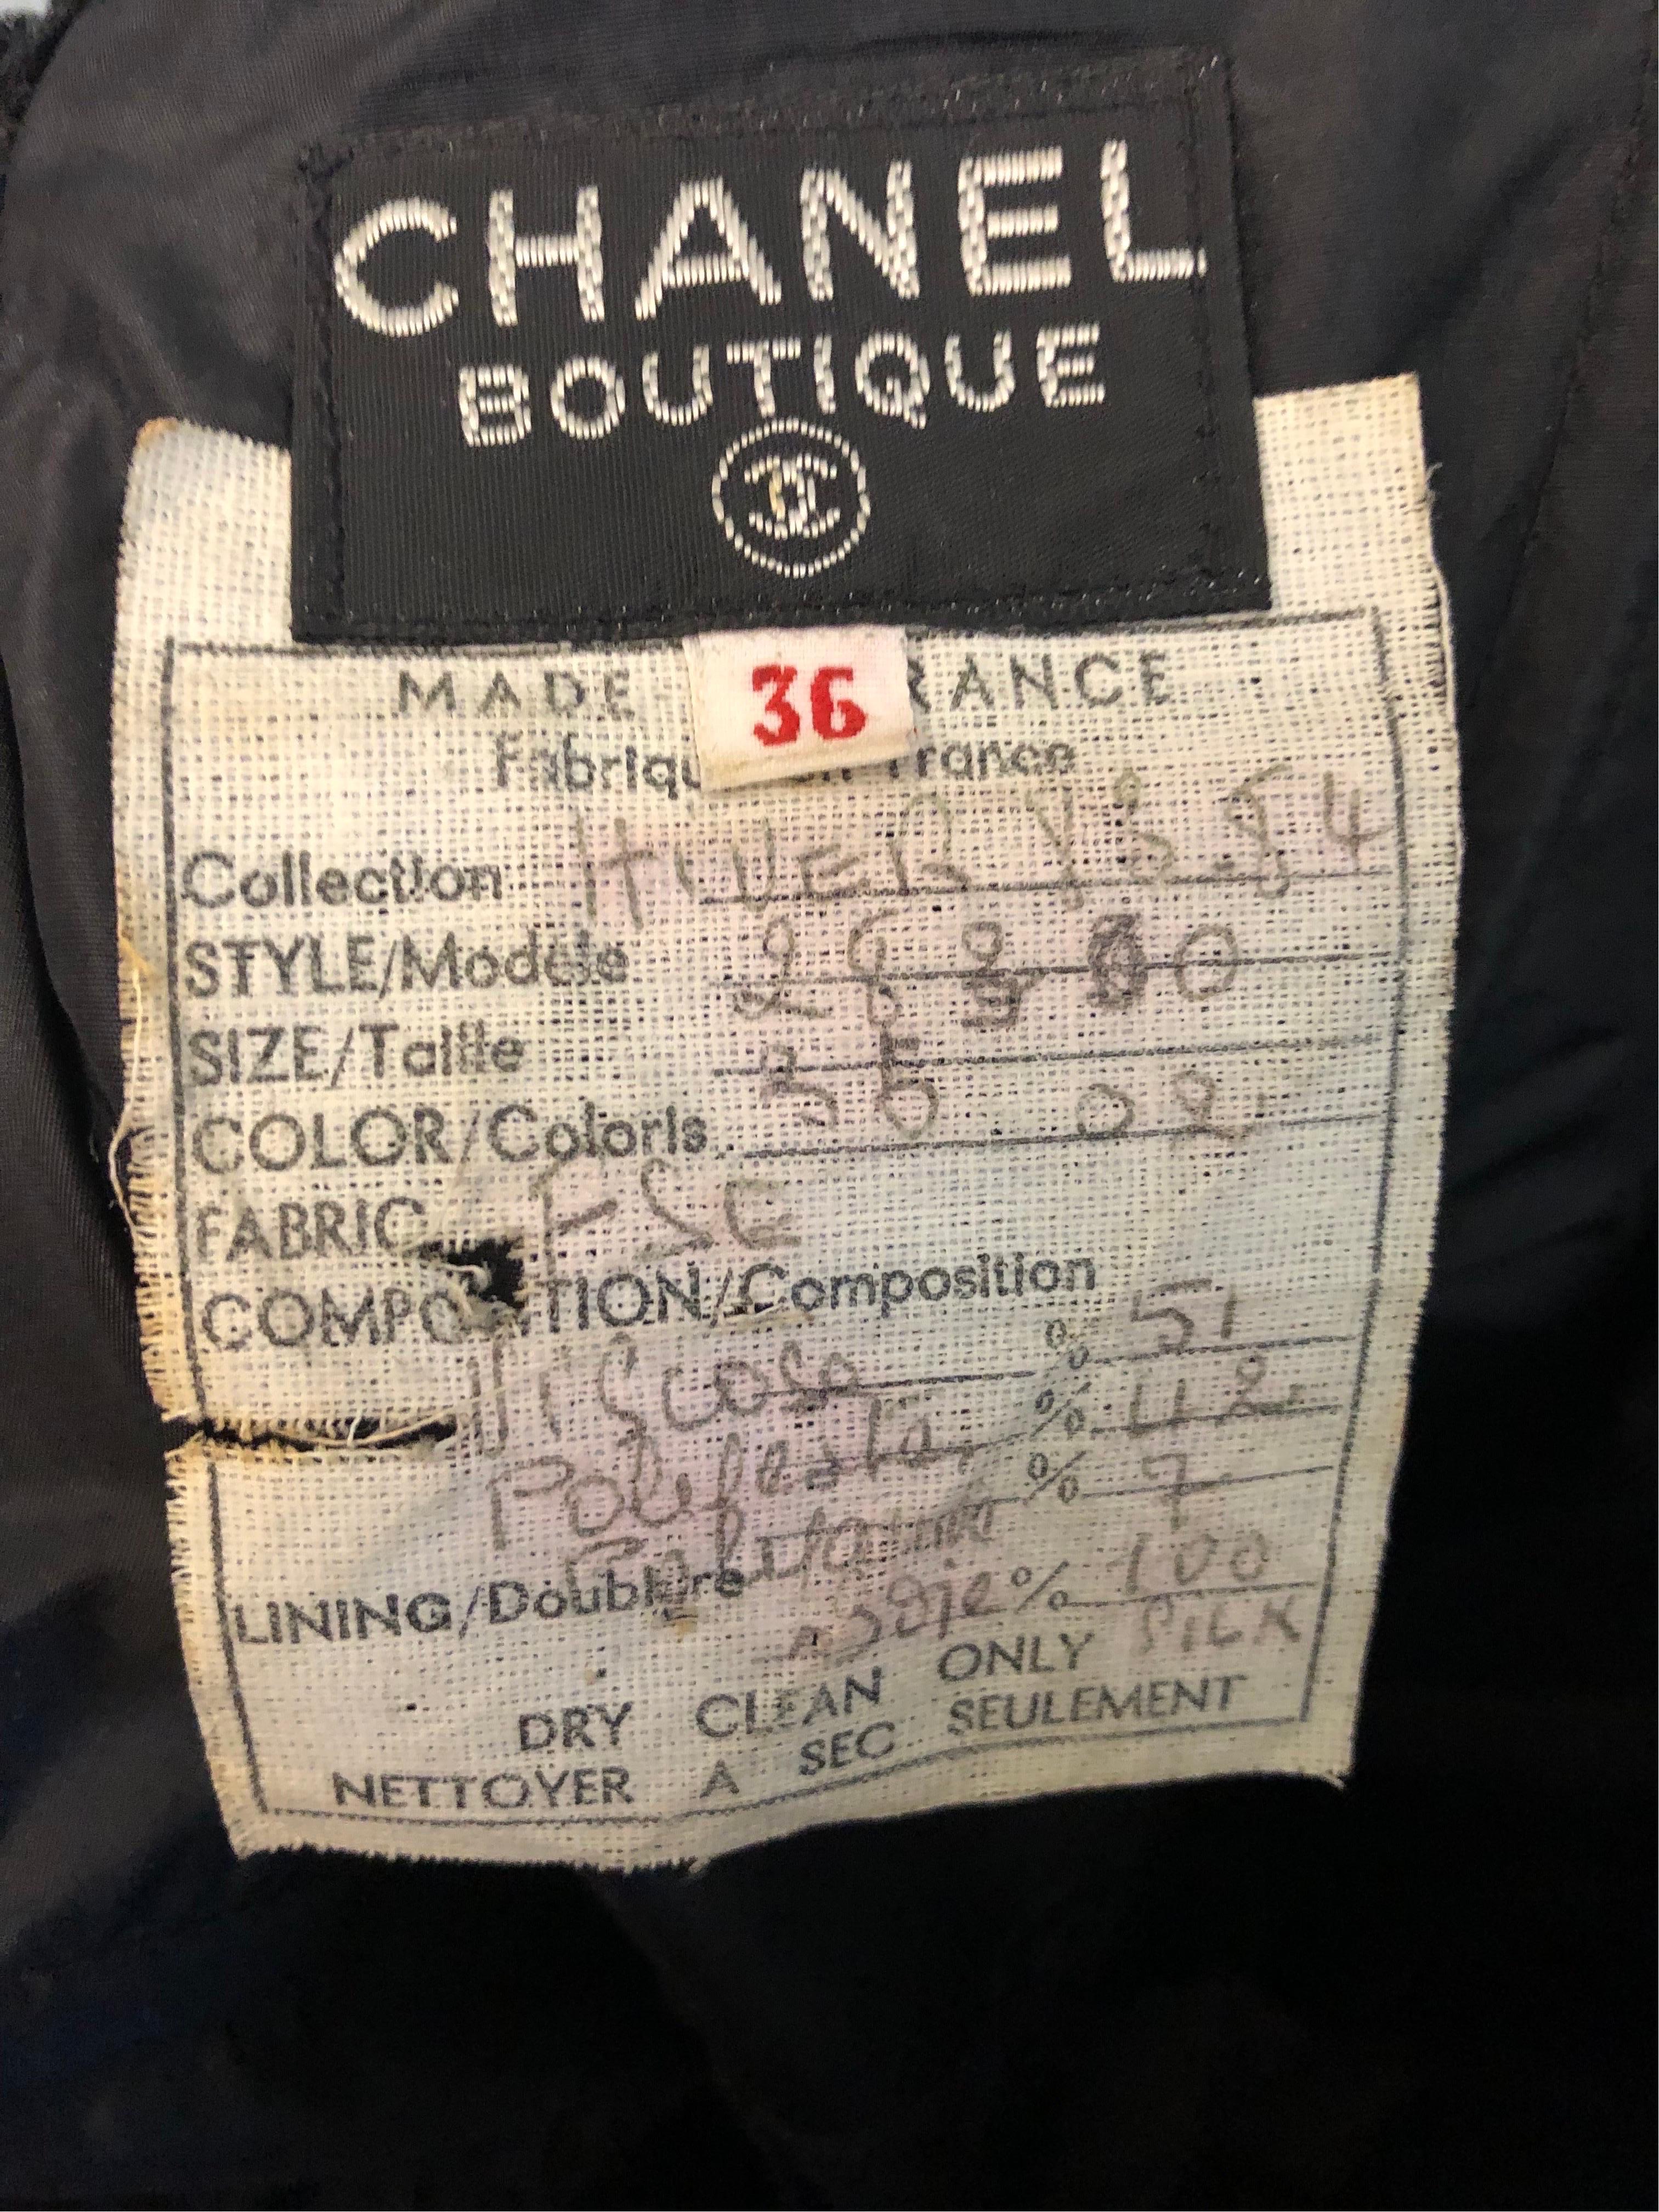 CHANEL
BOUTIQUE
36
MADE RANCE
Fabriqu en France
Collection HIVER 83.84
STYLE/Modèle
SIZE/Taille 36
COLOR/Coloris 02
FABRIC
COMPO TION/Composition
Viscose % 51
Polyester % 42
% 7
LINING/Doublure soie % 100
SILK
DRY CLEAN ONLY
NETTOYER A SEC SEULEMENT